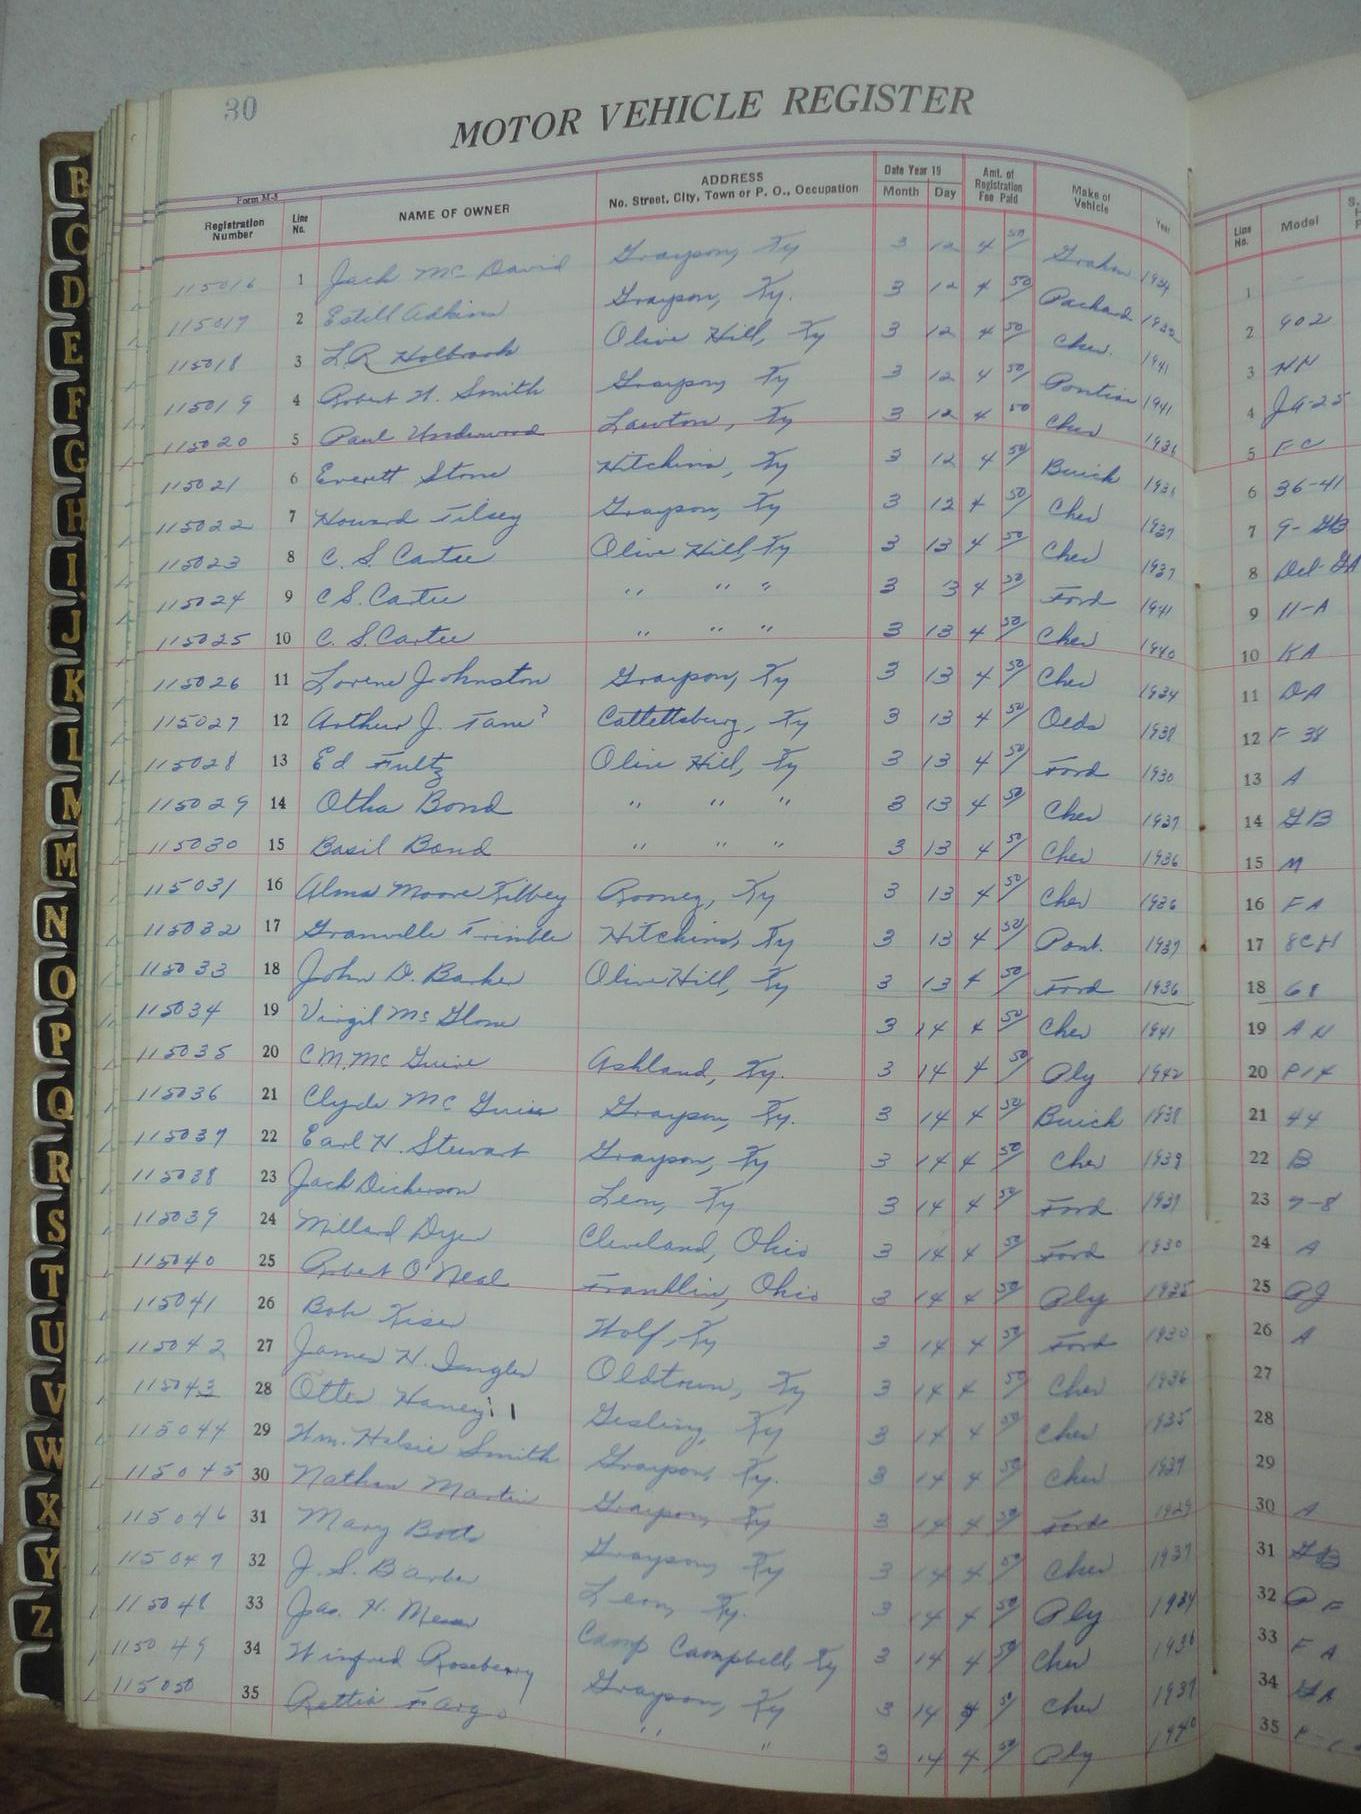 30
MOTOR VEHICLE REGISTER
Form M-5
Registration Number Line No. NAME OF OWNER ADDRESS No. Street, City, Town or P. O., Occupation Date Year 19 Month Day Amt. of Registration Fee Paid Make of Vehicle Year Line No. Model
115016 1 Jack Mc David Grayson, Ky 3 12 4 50 Graham 1934 1
115017 2 Estill Adkins Grayson, Ky. 3 12 4 50 Packard 2 902
115018 3 L.R. Holbrook Olive Hill, Ky 3 12 4 50 Chev. 1941 3
115019 4 Robert H. Smith Grayson, Ky 3 12 4 50 Pontiac 1941 4 JA-25
115020 5 Paul Underwood Lawton, Ky 3 12 4 50 Chev 1936 5 FC
115021 6 Everett Stone Hitchins, Ky 3 12 4 50 Buick 1936 6 36-41
115022 7 Howard Tilsey Grayson, Ky 3 12 4 50 Chev 1937 7
115023 8 C. S. Cartee Olive Hill, Ky 3 13 4 50 Chev 1937 8
115024 9 C S. Cartee " " " 3 3 4 50 Ford 1941 9 11-A
115025 10 C. S. Cartee " " " 3 13 4 50 Chev 1940 10 KA
115026 11 Lorene Johnston Grayson, Ky 3 13 4 50 Chev 1934 11 DA
115027 12 Arthur J. Tane? Cattettsburg, Ky 3 13 4 50 Olds 1938 12 F 38
115028 13 Ed Fultz Olive Hill, Ky 3 13 4 50 Ford 1930 13 A
115029 14 Otha Bond " " " 3 13 4 50 Chev 1937 14 GB
115030 15 Basil Bond " " " 3 13 4 50 Chev 1936 15 M
115031 16 Alma Moore Kilbey Rooney, Ky 3 13 4 50 Chev 1936 16 FA
115032 17 Granville Trimble Hitchins, Ky 3 13 4 50 Pont. 1937 17 8CH
115033 18 John D. Barker Olive Hill, Ky 3 13 4 50 Ford 1936 18 68
115034 19 Virgil Mc Glone 3 14 4 50 Chev 1941 19 AH
115035 20 C M. Mc Guire Ashland, Ky. 3 14 4 50 Ply 1942 20 P14
115036 21 Clyde Mc Guire Grayson, Ky. 3 14 4 50 Buick 1938 21 44
115037 22 Earl H. Stewart Grayson, Ky 3 14 4 50 Chev 1939 22 B
115038 23 Jack Dickerson Leon, Ky 3 14 4 50 Ford 1937 23
115039 24 Millard Dyer Cleveland, Ohio 3 14 4 50 Ford 1930 24 A
115040 25 Robert O'Neal Franklin, Ohio 3 14 4 50 Ply 1935 25 PJ
115041 26 Bob Kiser Wolf, Ky 3 14 4 50 Ford 1930 26 A
115042 27 James H. Oldtown, Ky 3 14 4 50 Chev 1936 27
115043 28 Haney Gesling, Ky 3 14 4 50 Chev 1935 28
115044 29 Wm. Smith Grayson, Ky. 3 14 4 50 Chev 1937 29
115045 30 Nathan Martin Grayson, Ky 3 14 4 50 Ford 1929 30 A
115046 31 Mary Botts Grayson, Ky 3 14 4 50 Chev 1937 31 GB
115047 32 J. S. Barber Leon, Ky. 3 14 4 50 Ply 1934 32 PF
115048 33 Jas. H. Camp Campbell, Ky 3 14 4 50 Chev 1936 33 FA
115049 34 Winfred Roseberry Grayson, Ky 3 14 4 50 Chev 1937 34 GA
115050 35 Fargo " " 3 14 4 50 Ply 1940 35
B
C
D
E
F
G
H
I
J
K
L
M
M
N
O
P
Q
R
S
T
U
V
W
X
Y
Z